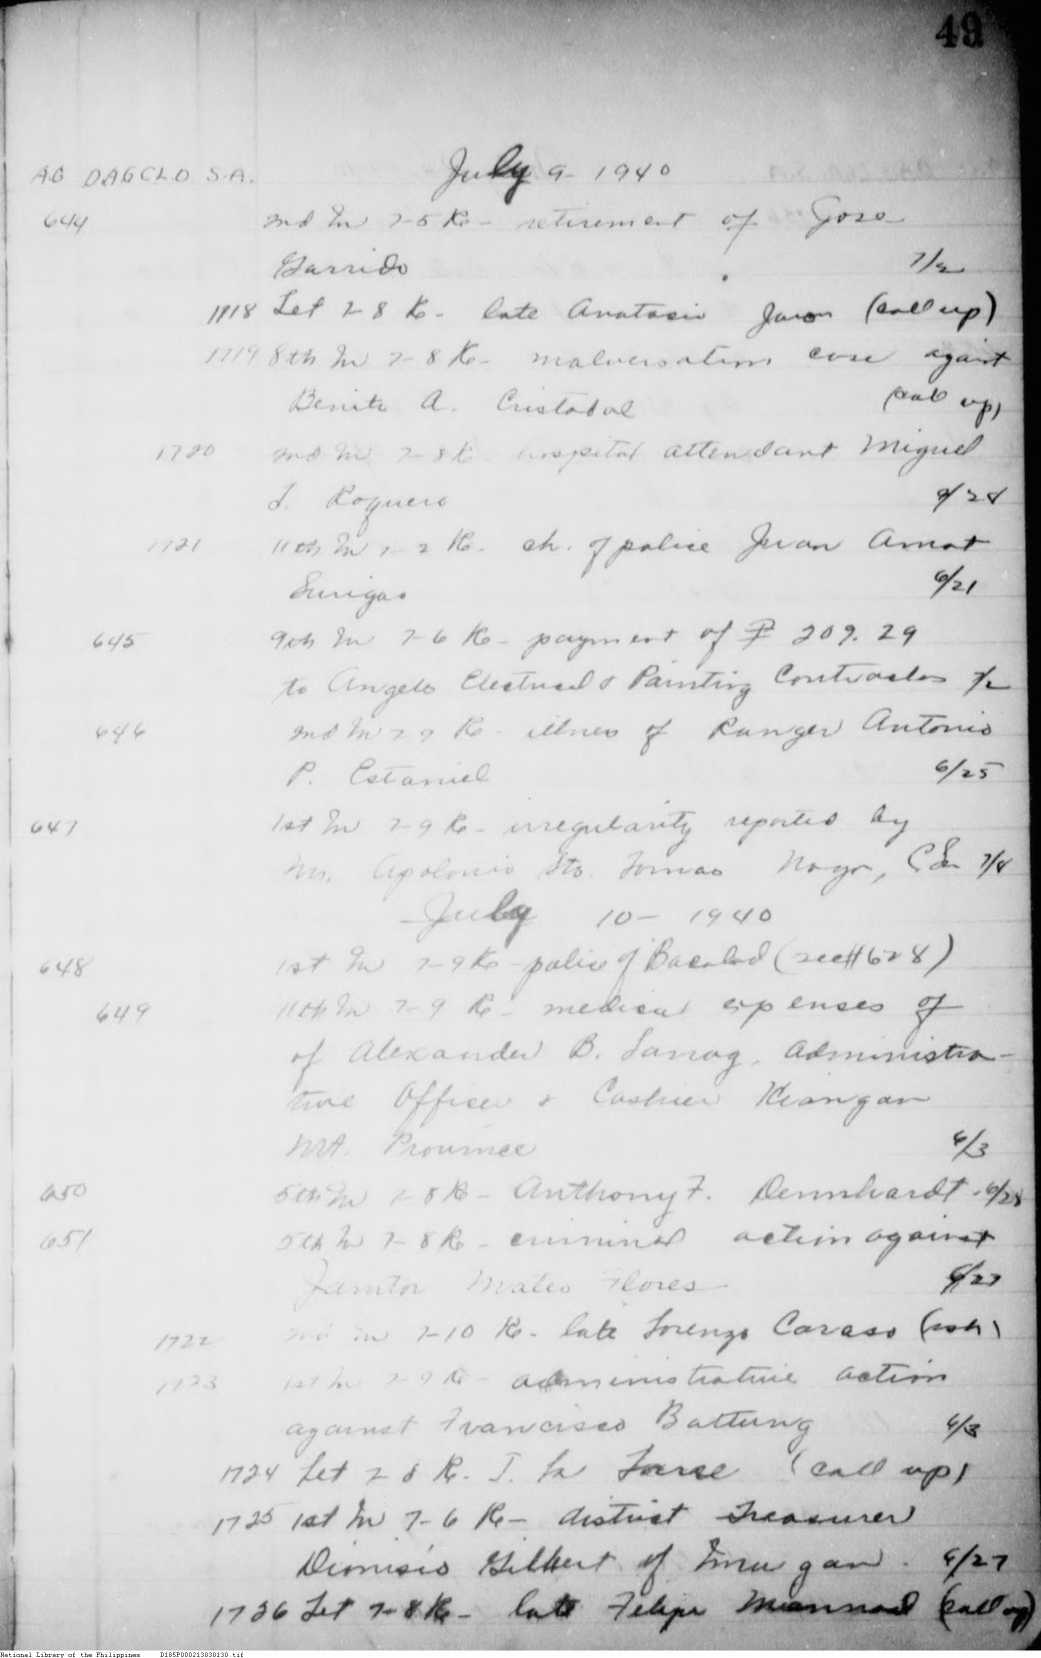 49
AG DAGCLO S.A. July 9 - 1940
644 2nd In 7-5 Re - retirement of Goso
Garrido 7/2
1718 Let 7-8 Re - late Anatacio (call up)
1719 8th In 7-8 Re - malversation case against
Benito A. Cristobal (call up)
1720 2nd In 7-8 Re hospital attendant Miguel
Roquero
1721 11th In 7-2 Re - ch. of police Juan Amat
Surigao 6/21
645 9th In 7-6 Re - payment of ₱ 209.29
to Angelo Electrical & Painting Contractor
646 2nd In 7-9 Re - illness of Ranger Antonio
P. Estaniel 6/25
647 1st In 7-9 Re - irregularity reported by
Mr. Apolonio Sto. Tomas Naga, 7/8
July 10 - 1940
648 1st In 7-9 Re - police of Bacolod (see # 628)
649 11th In 7-9 Re - medical expenses of
of Alexander B. Administra-
tive Officer & Cashier Kiangan
Mt. Province 6/3
650 5th In 7-8 Re - Anthony F. Dennhardt - 6/28
651 5th In 7-8 Re - criminal action against
Janitor Mateo Flores 6/27
1722 2nd In 7-10 Re - late Lorenzo Caraso
1723 1st In 7-9 Re - administrative action
against Francisco Battung 6/3
1724 Let 7-8 Re - (call up)
1725 1st In 7-6 Re - district treasurer
Dionisio Gilbert of Imugan - 6/27
1726 Let 7-8 Re - late Felipe (call up)
National Library of the Philippines D185P000213030130.tif